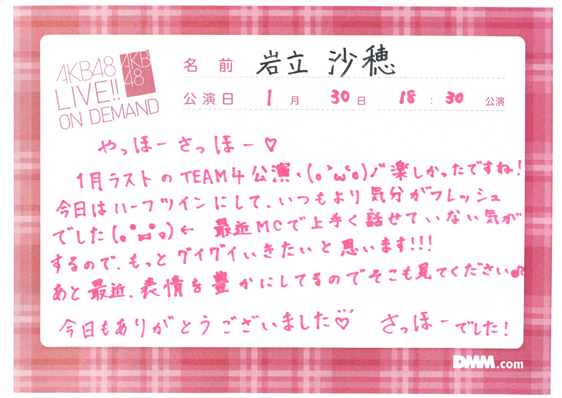 AKB48
LIVE!!
ON DEMAND
AKB
48
名前 岩立 沙穂
公演日 1月 30日 18:30 公演
やっほー さっほー♡
1月ラストのTEAM4公演ヽ(。`ω´。)ノ楽しかったですね!
今日はハーフツインにして、いつもより気分がフレッシュ
でした(。`ω´。)← 最近MCで上手く話せていない気が
するので、もっとグイグイいきたいと思います!!!
あと最近、表情を豊かにしてるのでそこも見てください♪
今日もありがとうございました♡ さっほーでした!
DMM.com